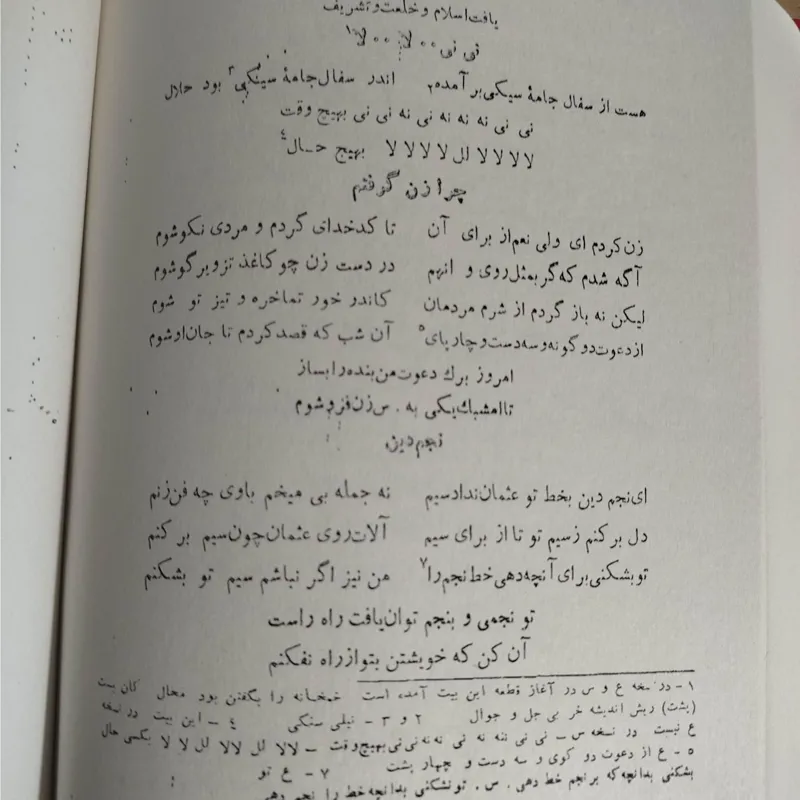 یافت اسلام و خلعت و تشریف
نی نی ۰۰ لا ۰۰ لا۱
هست از سفال جامهٔ سیکی بر آمده۲ اندر سفال جامهٔ سینکی۳ بود حلال
نی نی نه نه نه نی نه نی نی بهیچ وقت
لا لا لا لا لل لا لا لا لا بهیچ حال۴
چرا زن گرفتم
زن کردم ای ولی نعم از برای آن تا کدخدای گردم و مردی نکوشوم
آگه شدم که گر بمثل روی و انهم در دست زن چو کاغذ تزویر گوشوم
لیکن نه باز گردم از شرم مردمان کاندر خور تماخره و تیز تو شوم
از دعوت دو گونه و سه دست و چار پای۵ آن شب که قصد کردم تا جان او شوم
امروز برك دعوت من بنده را بساز
تا امشبك یکی به . س زن فرو شوم
نجم دین
ای نجم دین بخط تو عثمان نداد سیم نه جمله بی میخم باوی چه فن زنم
دل بر کنم زسیم تو تا از برای سیم آلات روی عثمان چون سیم بر کنم
تو بشکنی برای آنچه دهی خط نجم را۷ من نیز اگر نباشم سیم تو بشکنم
تو نجمی و بنجم توان یافت راه راست
آن کن که خویشتن بتو از راه نفکنم
۱ - در نسخه ع و س در آغاز قطعه این بیت آمده است خمخانه را بگفتن بود محال کان بیت
(پشت) ریش اندیشه خر بی جل و جوال ۲ و ۳ - نیلی سنکی ۴ - این بیت در نسخه
ع نیست در نسخه س - نی نی ننه نه نی نه نه نی نی بهیچ وقت - لالا لل لالا لل لا لا بکسی حال
۵ - ع از دعوت دو کوی و سه دست و چهار پشت ۷ - ع تو
بشکنی بدانچه که بر نجم خط دهی . س . تو نشکنی بدانچه خط را نجم دهی